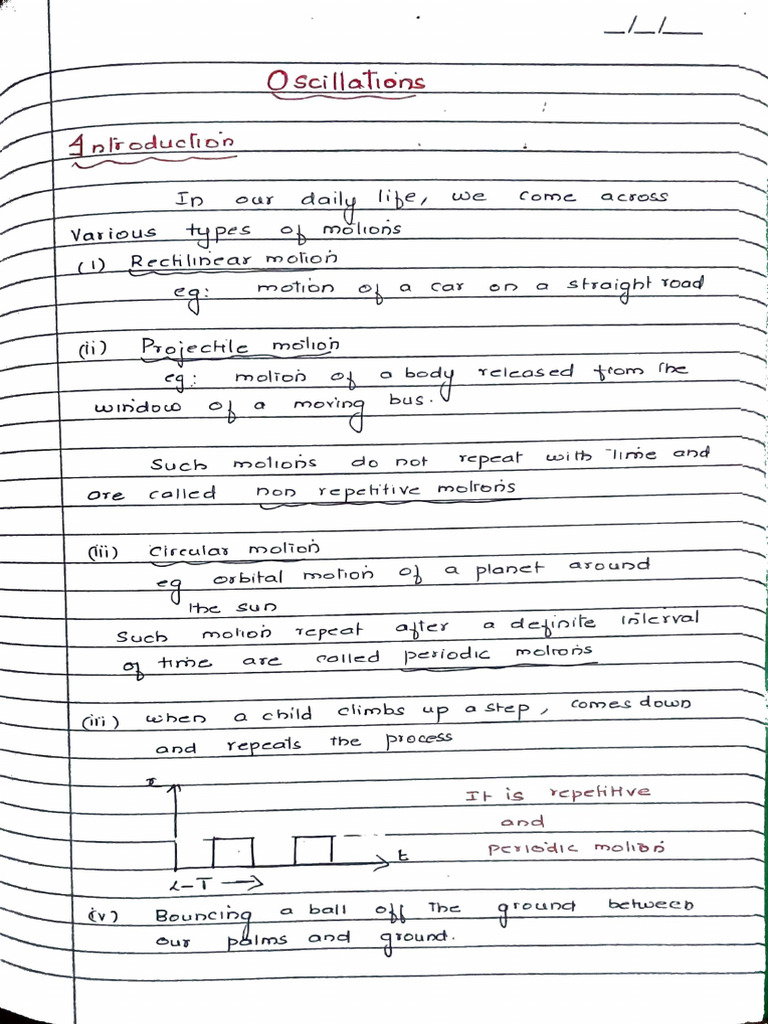 _/_/__
Oscillations
Introduction
In our daily life, we come across
various types of motions
(i) Rectilinear motion
eg: motion of a car on a straight road
(ii) Projectile motion
eg: motion of a body released from the
window of a moving bus.
Such motions do not repeat with time and
are called non repetitive motions
(iii) Circular motion
eg orbital motion of a planet around
the sun
Such motion repeat after a definite interval
of time are called periodic motions
(iii) when a child climbs up a step, comes down
and repeats the process
x
It is repetitive
and
periodic motion
t
<-T->
(v) Bouncing a ball off the ground between
our palms and ground.